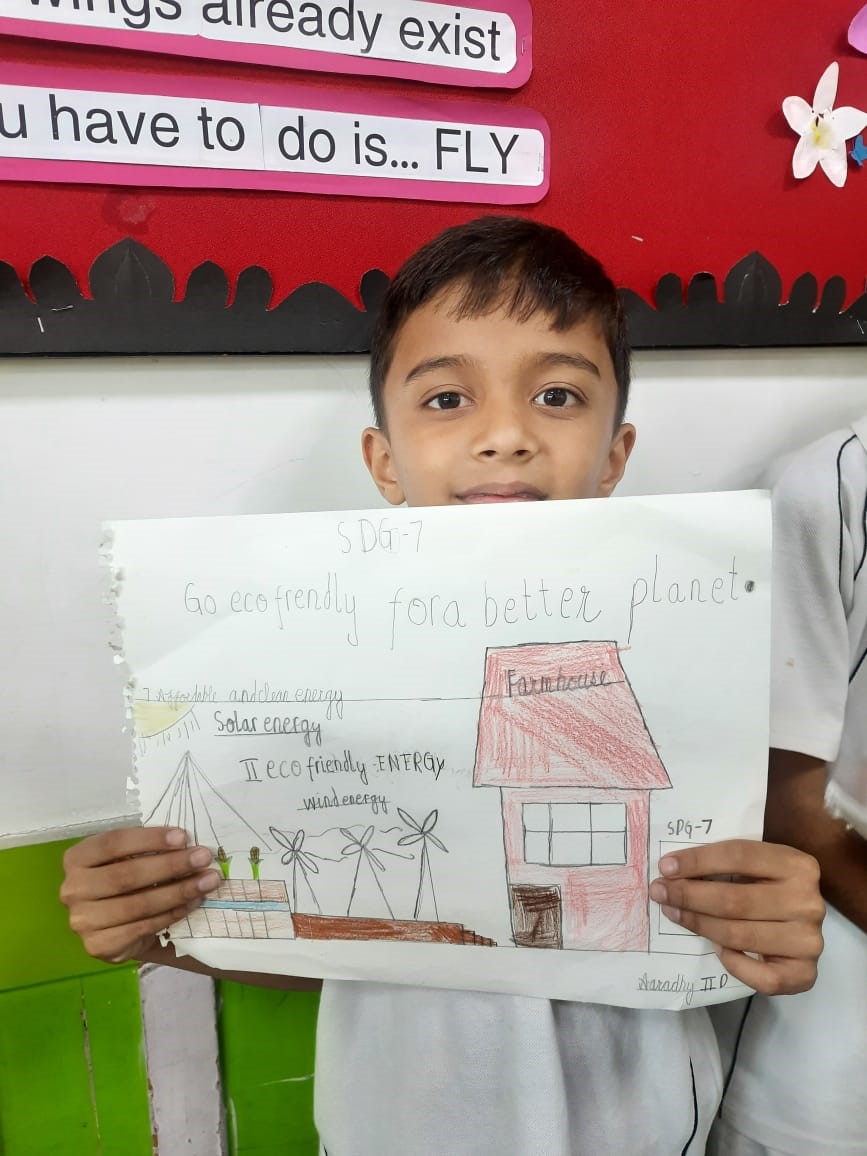 wings already exist
u have to do is... FLY
SDG-7
Go ecofrendly fora better planet.
7 Affordable and clean energy
Farmhouse
Solar energy
II eco friendly ENERGY
wind energy
SDG-7
Aaradhy II D